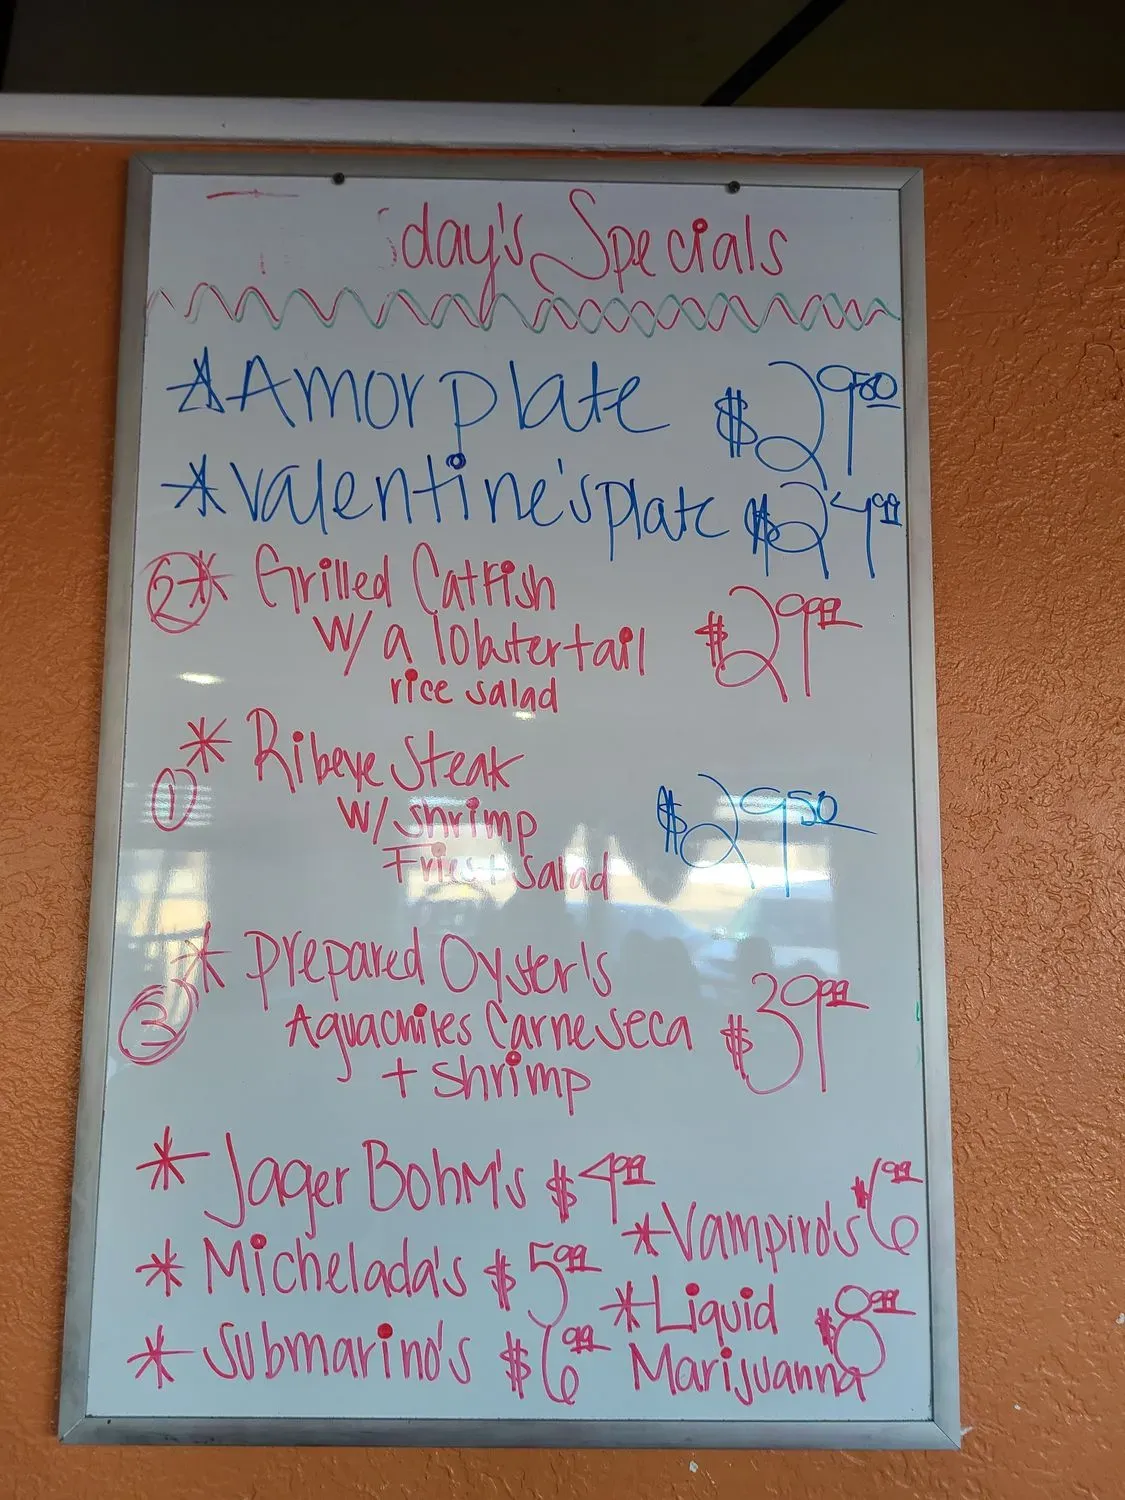 day's Specials
*Amor plate $29.50
*Valentine's plate $24.99
2* Grilled Catfish
w/ a lobster tail $29.99
rice salad
* Ribeye Steak
1 w/ shrimp $29.50
Fries + Salad
* Prepared Oyster's
3 Aguachiles Carne seca $39.99
+ shrimp
* Jager Bohm's $4.99
*Vampiro's $6.99
* Michelada's $5.99
*Liquid $8.99
Marijuanna
* Submarino's $6.99